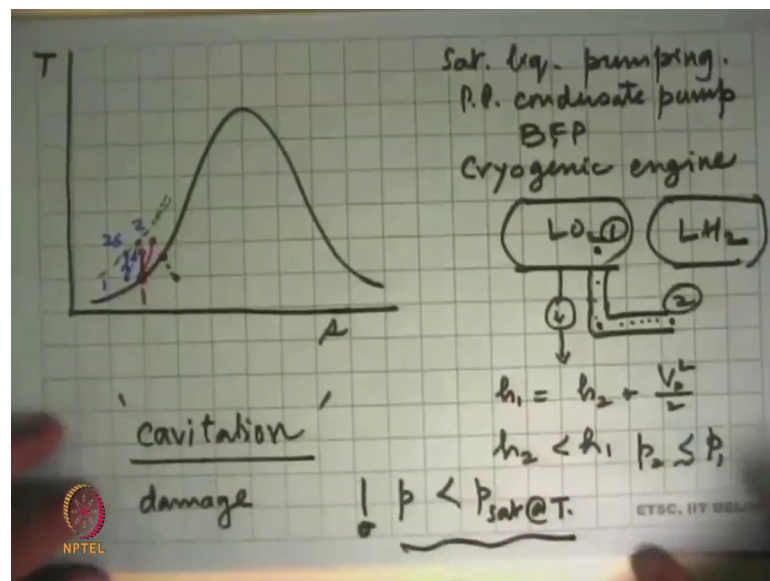 T
Sat. liq. pumping.
P.P. condensate pump
BFP
Cryogenic engine
2s 2
1
1
s
LO2 1
LH2
2
h1 = h2 + V2²/2
h2 < h1 p2 ≤ p1
' cavitation '
damage
! p < psat@T.
NPTEL
ETSC, IIT DELHI